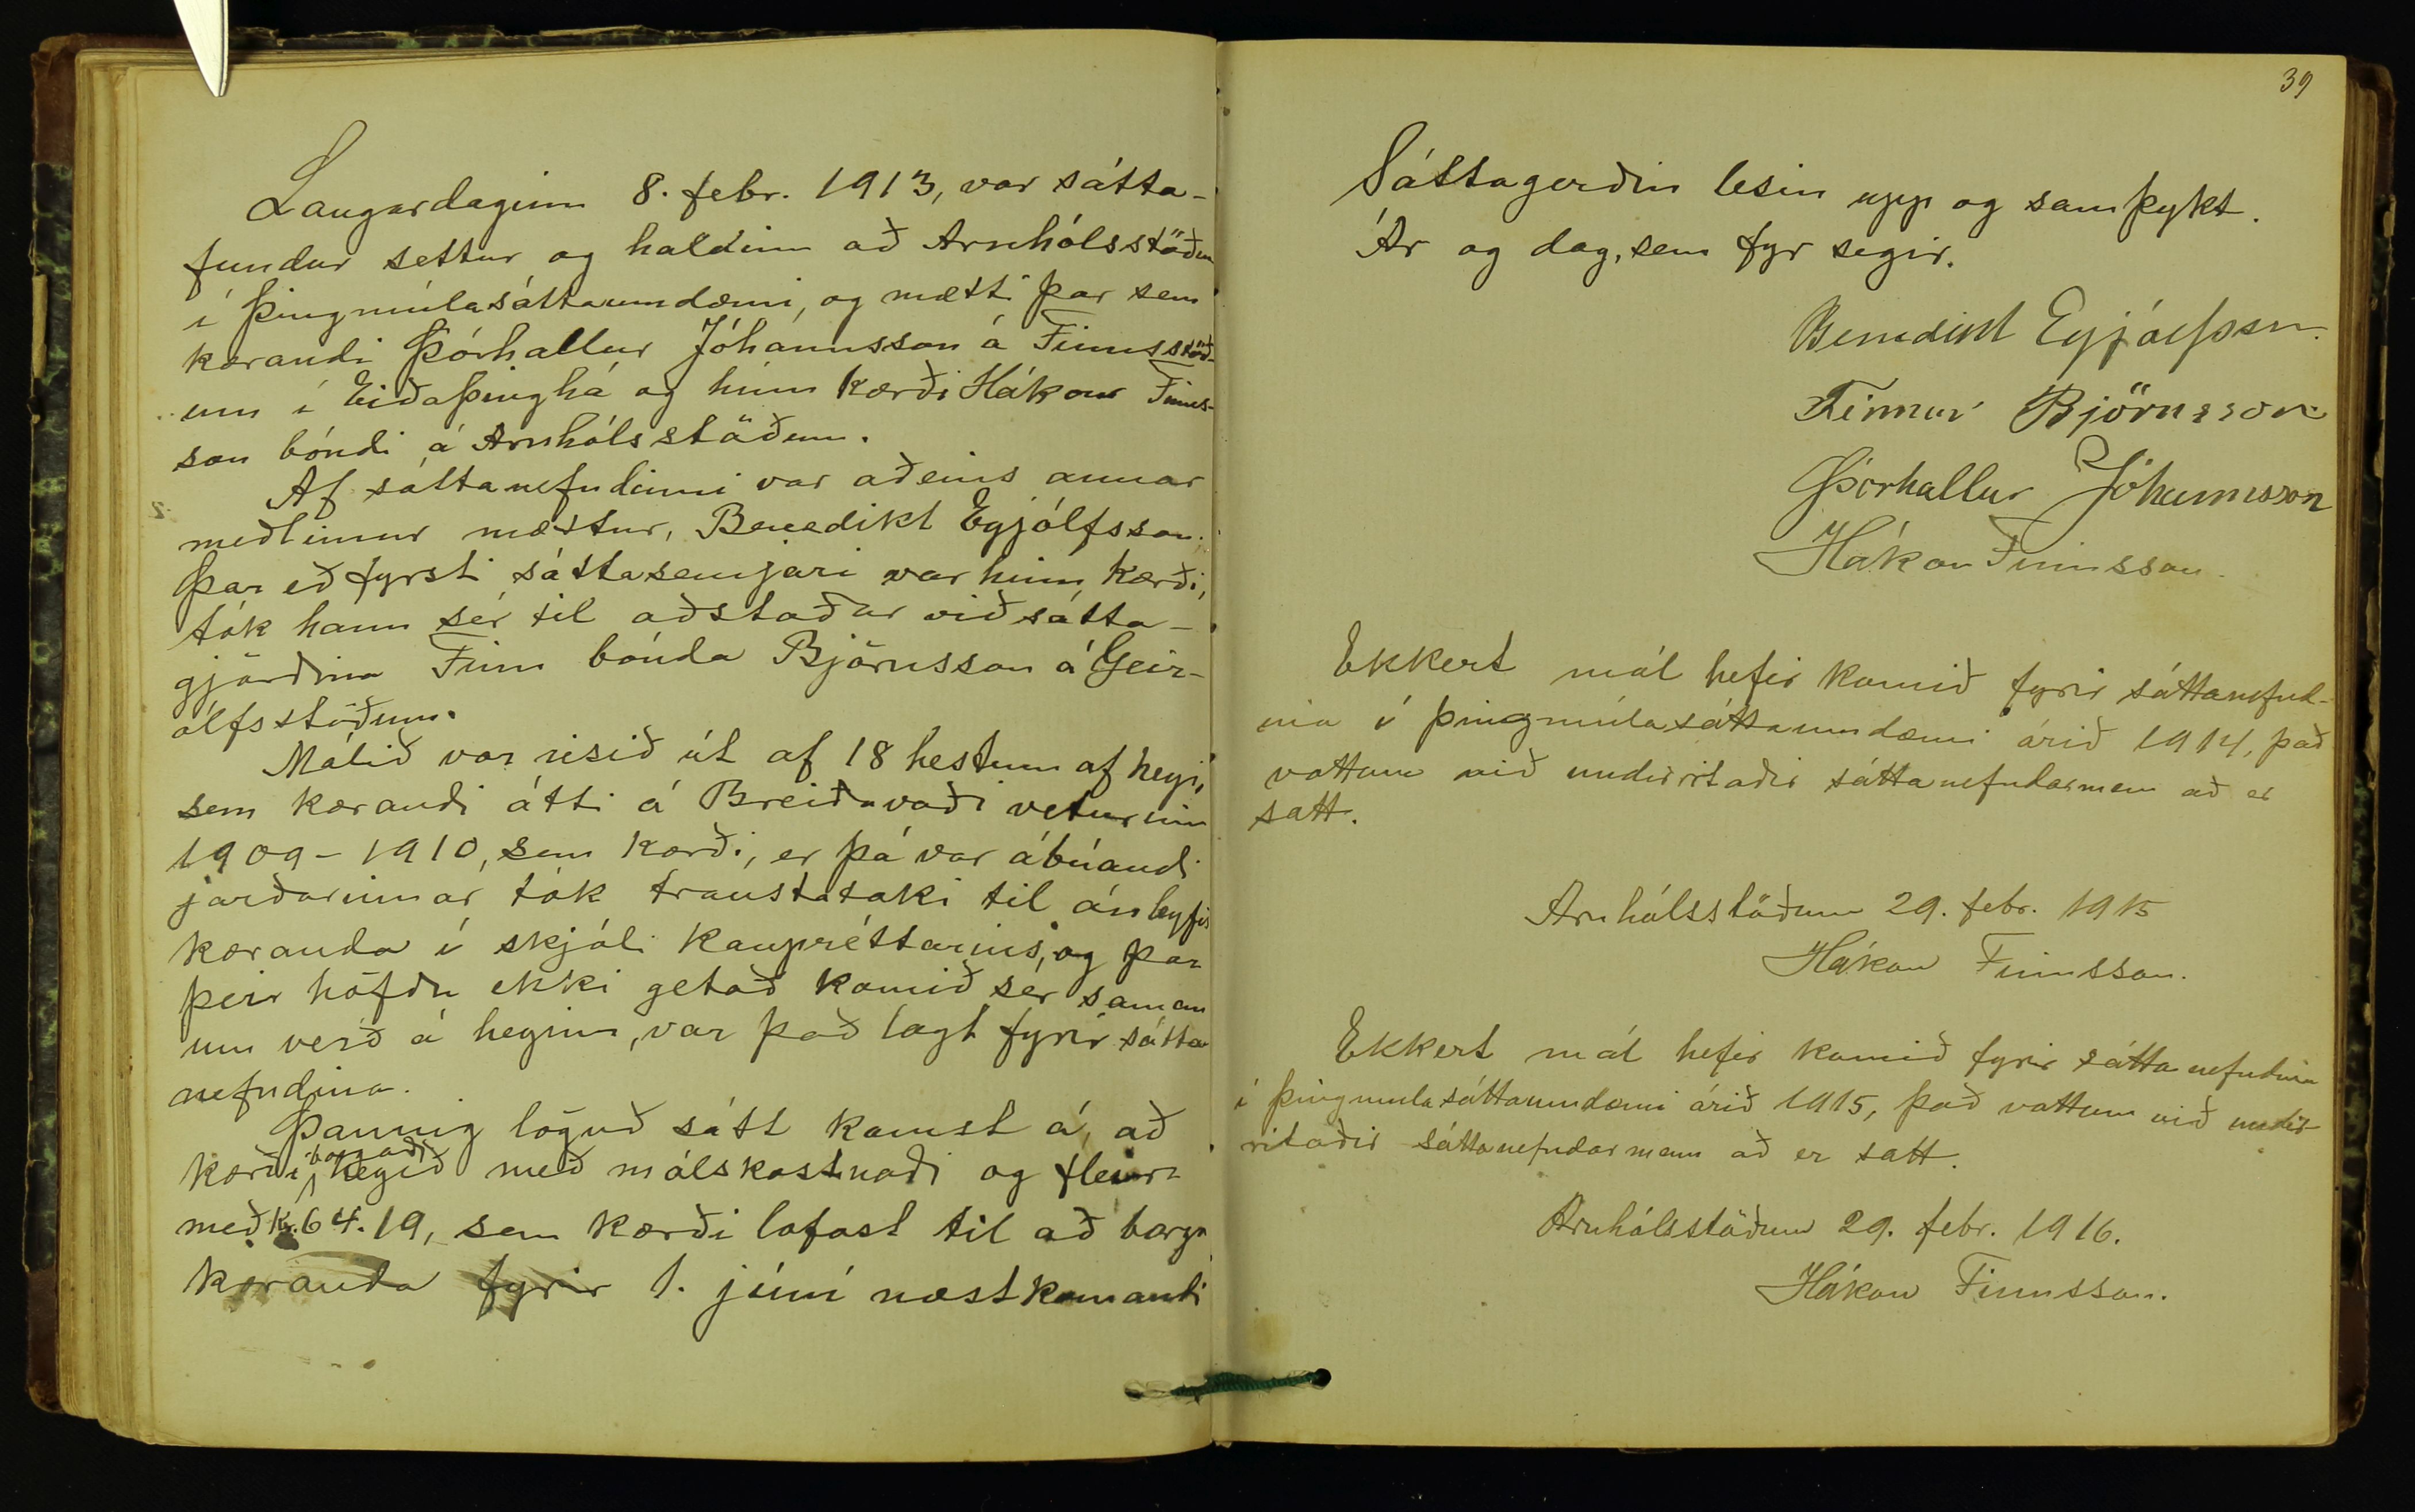 Laugardaginn 8. febr. 1913, var sátta-
fundur settur og haldinn að Arnhólsstöðum
í Þingmúlasáttaumdæmi, og mætti þar sem
kærandi Þórhallur Jóhannsson á Finnsstöð-
um í Eiðaþinghá og hinn kærði Hákon Finns-
son bóndi á Arnhólsstöðum.
Af sáttanefndinni var aðeins annar
meðlimur mættur, Benedikt Eyjólfsson.
Þar eð fyrsti sáttasemjari var hinn kærði,
tók hann sér til aðstoðar við sátta-
gjörðina Finn bónda Björnsson á Geir-
ólfsstöðum.
Málið var risið út af 18 hestum af heyi,
sem kærandi átti á Breiðavaði veturinn
1909-1910, sem kærði, er þá var ábúandi
jarðarinnar tók traustataki til án leyfis
kæranda í skjóli kaupréttarins, og þar
þeir höfðu ekki getað komið sér saman
um verð á heyinu, var það lagt fyrir sátta
nefndina.
Þannig löguð sátt komst á, að
kærði borgaði heyið með málskostnaði og fleira
með kr. 64.19, sem kærði lofast til að borga
kæranda fyrir 1. júní næstkomandi
39
Sáttagerðin lesin upp og samþykt.
Ár og dag, sem fyr segir.
Benedikt Eyjólfsson
Finnur Björnsson
Þórhallur Jóhannsson
Hákon Finnsson.
Ekkert mál hefir komið fyrir sáttanefnd-
ina í þingmúlasáttaumdæmi árið 1914, það
vottum við undirritaðir sáttanefndarmenn að er
satt.
Arnhólsstöðum 29. febr. 1915
Hákon Finnsson.
Ekkert mál hefir komið fyrir sáttanefndina
í þingmulasáttaumdæmi árið 1915, það vottum við undir
ritaðir sáttanefndarmenn að er satt.
Arnhólsstöðum 29. febr. 1916.
Hákon Finnsson.